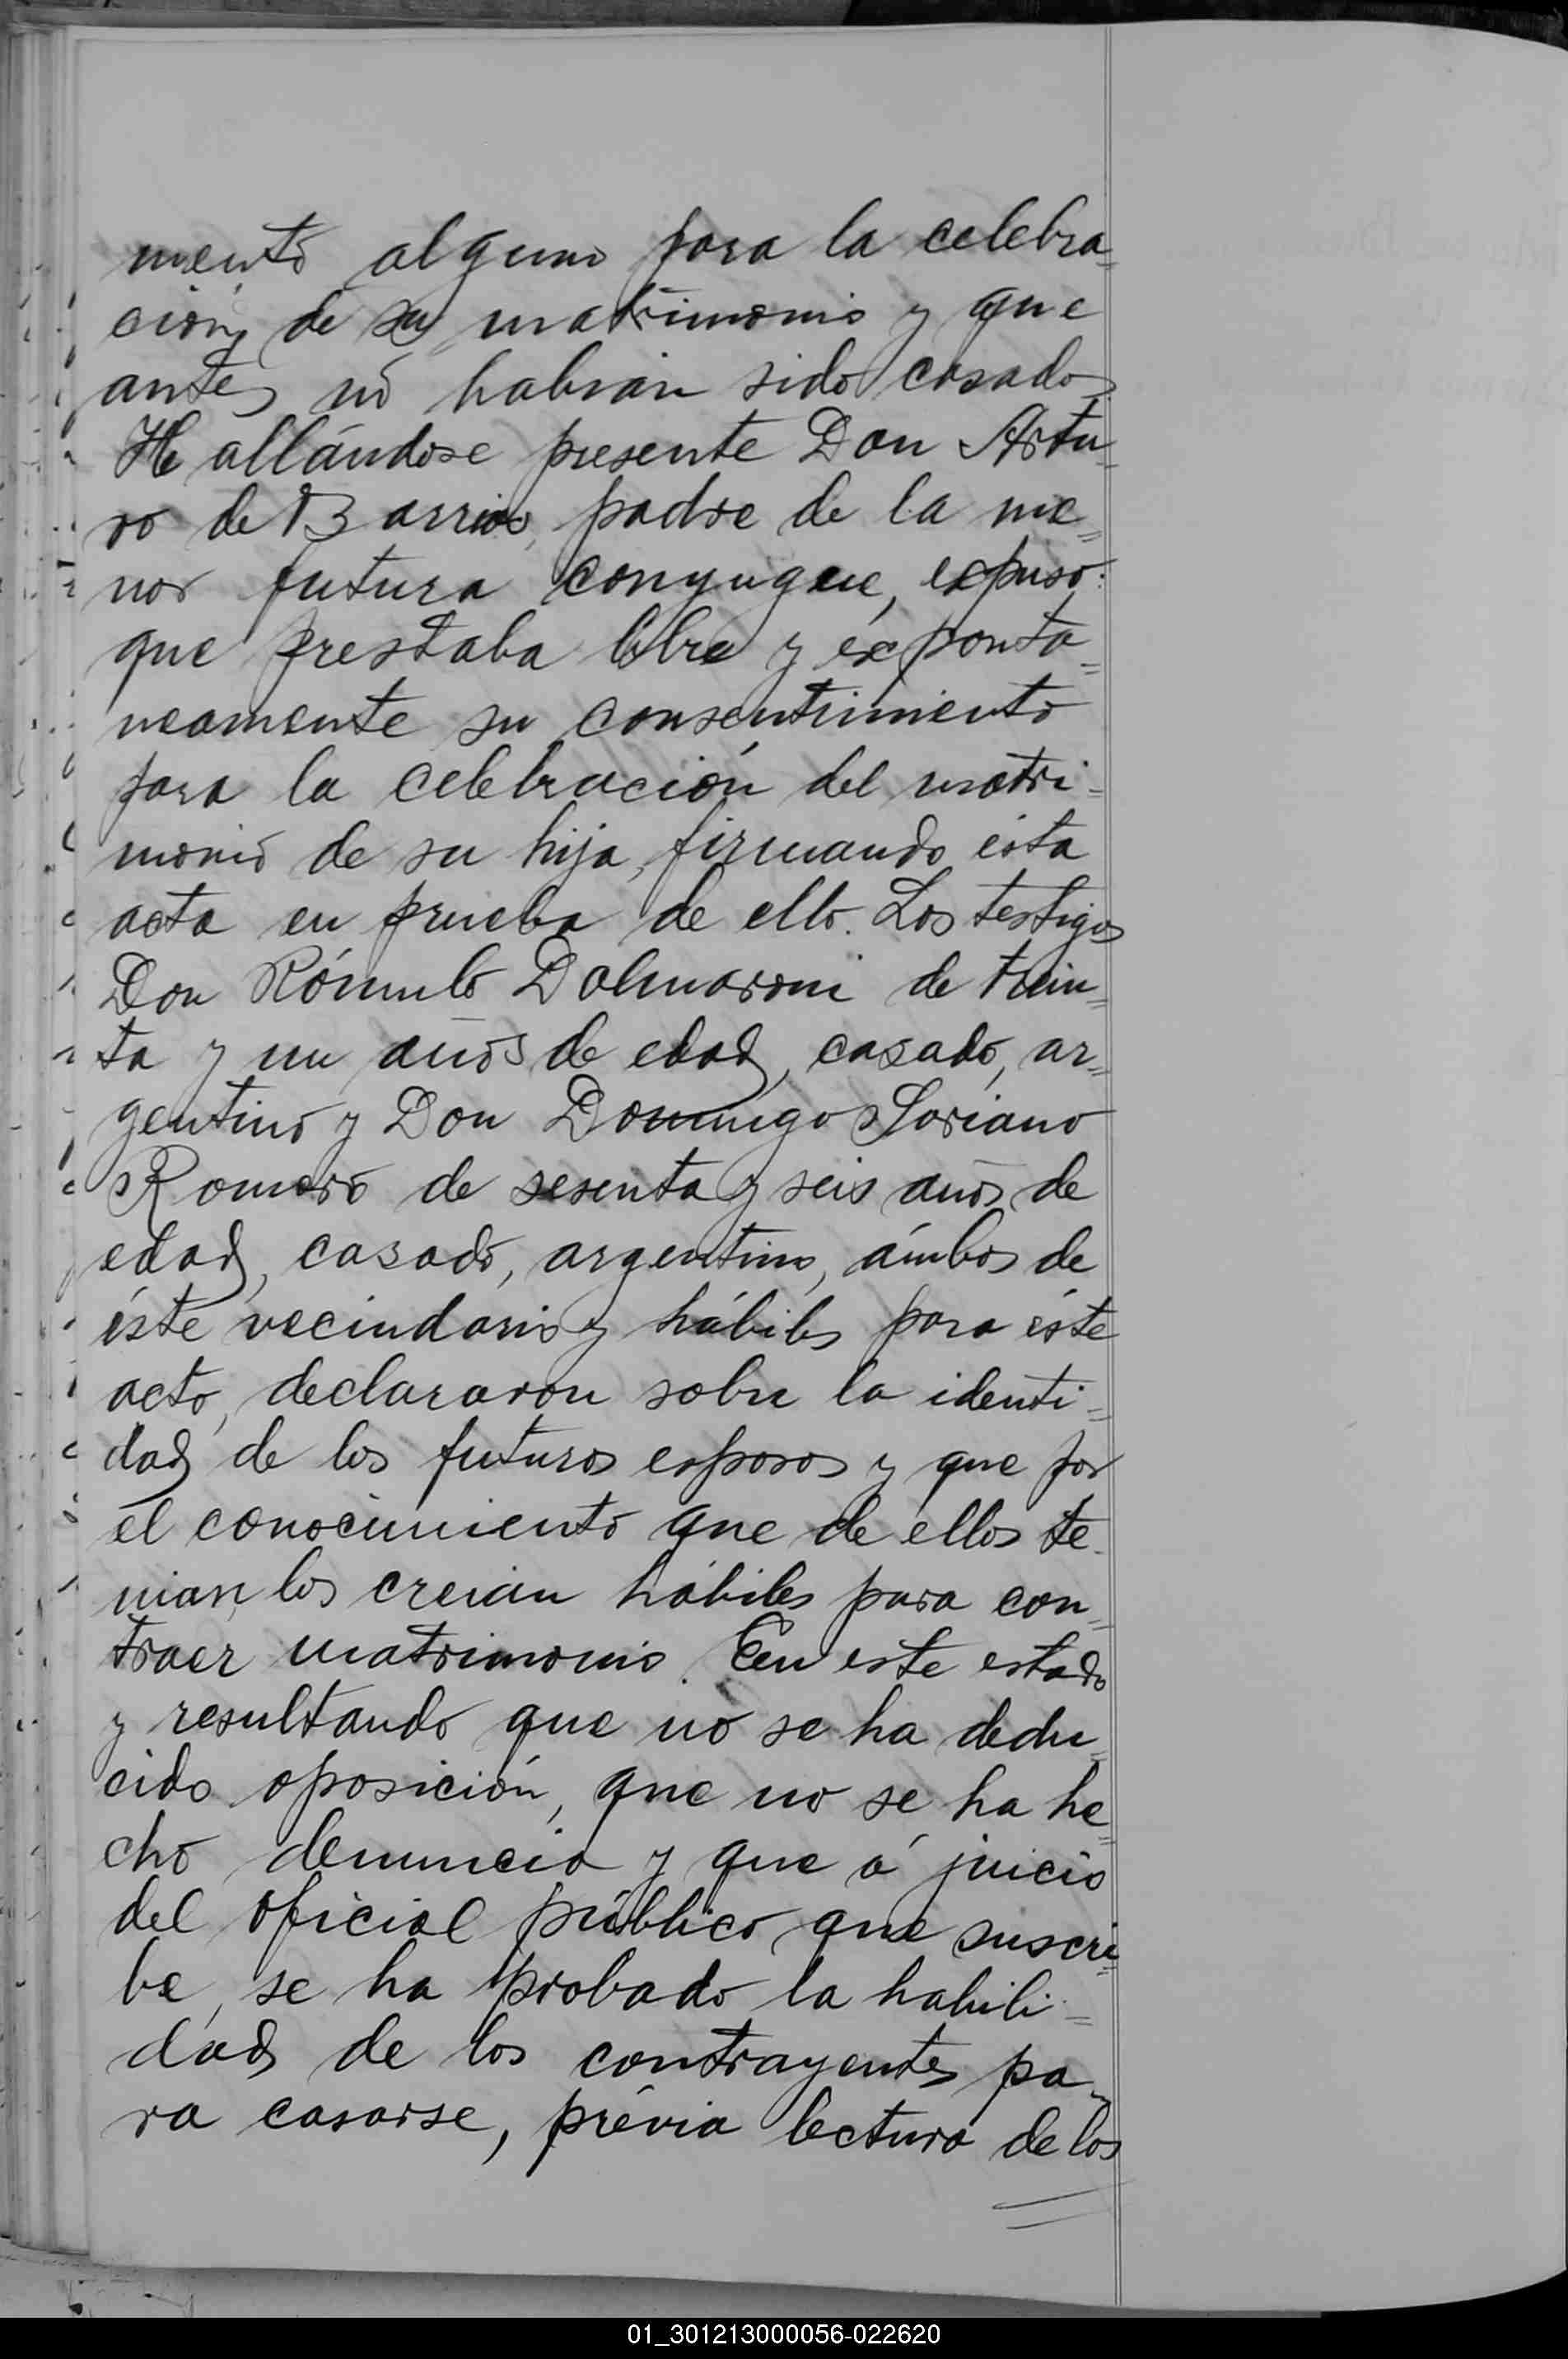 mento alguno para la celebra-
ción de su matrimonio y que
antes nó habian sido casados
Hallándose presente Don Artu-
ro de Barrios, padre de la me=
nor futura conyugue, expuso:
que prestaba libre y exponta=
neamente su consentimiento
para la celebración del matri=
monio de su hija, firmando ésta
acta en prueba de ello. Los testigos
Don Rómulo Dalmaroni de trein=
ta y un años de edad, casado, ar=
gentino y Don Domingo Soriano
Romero de sesenta y seis años de
edad, casado, argentino, ámbos de
éste vecindario y hábiles para éste
acto, declararon sobre la identi=
dad de los futuros esposos y que por
el conocimiento que de ellos te-
nian los creian hábiles para con=
traer matrimonio. En este estado
y resultando que no se ha dedu=
cido oposición, que no se ha he=
cho denuncia y que á juicio
del oficial público que suscri=
be, se ha probado la habili=
dad de los contrayentes pa-
ra casarse, prévia lectura de los
01_301213000056-022620